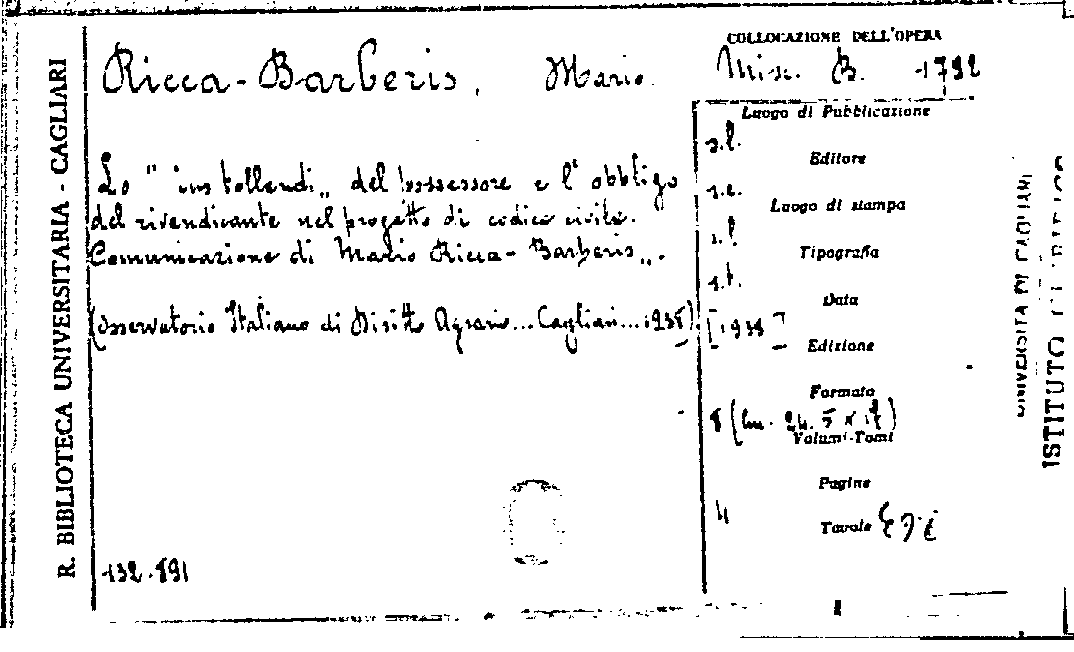 R. BIBLIOTECA UNIVERSITARIA - CAGLIARI
Ricca-Barberis, Mario.
Lo "ius tollendi„ del possessore e l'obbligo
del rivendicante nel progetto di codice civile.
Comunicazione di Mario Ricca-Barberis„.
(Osservatorio Italiano di Diritto Agrario... Cagliari... 1938)
132.891
COLLOCAZIONE DELL'OPERA
Misc. B. 1792
Luogo di Pubblicazione
s.l.
Editore
s.e.
Luogo di stampa
s.l.
Tipografia
s.t.
Data
[1938]
Edizione
Formato
8 (cm. 24.5 x 17)
Volumi-Tomi
Pagine
4
Tavole
UNIVERSITÀ DI CAGLIARI
ISTITUTO